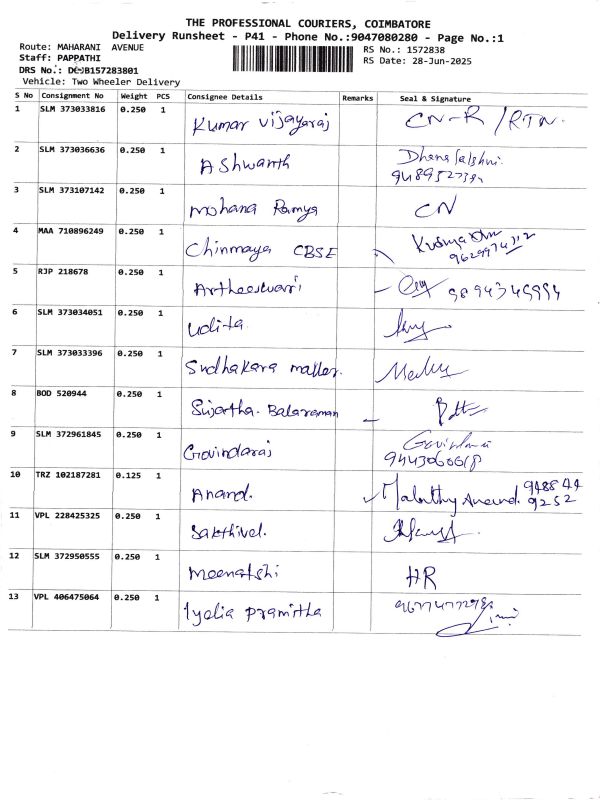 THE PROFESSIONAL COURIERS, COIMBATORE
Delivery Runsheet - P41 - Phone No.:9047080280 - Page No.:1
Route: MAHARANI AVENUE
RS No.: 1572838
Staff: PAPPATHI
RS Date: 28-Jun-2025
DRS No.: B157283801
Vehicle: Two Wheeler Delivery
S No Consignment No Weight PCS Consignee Details Remarks Seal & Signature
1 SLM 373033816 0.250 1 Kumar vijayaraj CN-R /RTN.
2 SLM 373036636 0.250 1 Ashwanth
3 SLM 373107142 0.250 1 Mohana Ramya CN
4 MAA 710896249 0.250 1 Chinmaya CBSE
5 RJP 218678 0.250 1 Artheeswari
6 SLM 373034051 0.250 1 Udita
7 SLM 373033396 0.250 1 Sudhakara
8 BOD 520944 0.250 1 Balaraman
9 SLM 372961845 0.250 1 Govindaraj
9443060618
10 TRZ 102187281 0.125 1 Anand. Malathy Anand. 948844
9252
11 VPL 228425325 0.250 1 Sakthivel.
12 SLM 372950555 0.250 1 Meenatshi HR
13 VPL 406475064 0.250 1